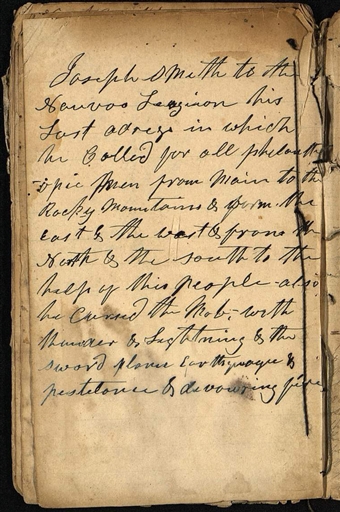 Joseph Smith to the
Nauvoo Leagion his
Last adress in which
he Called for all philanth
ropic men from Main to the
Rocky Mountains & from the
east & the west & from the
North & the south to the
help of this people - also
he Cursed the Mob, with
thunder & Lightning & the
sword Earthquake &
pestilence & devouring fire